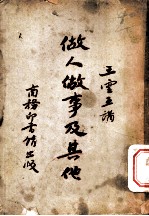 王雲五講
做人做事及其他
商務印書館出版